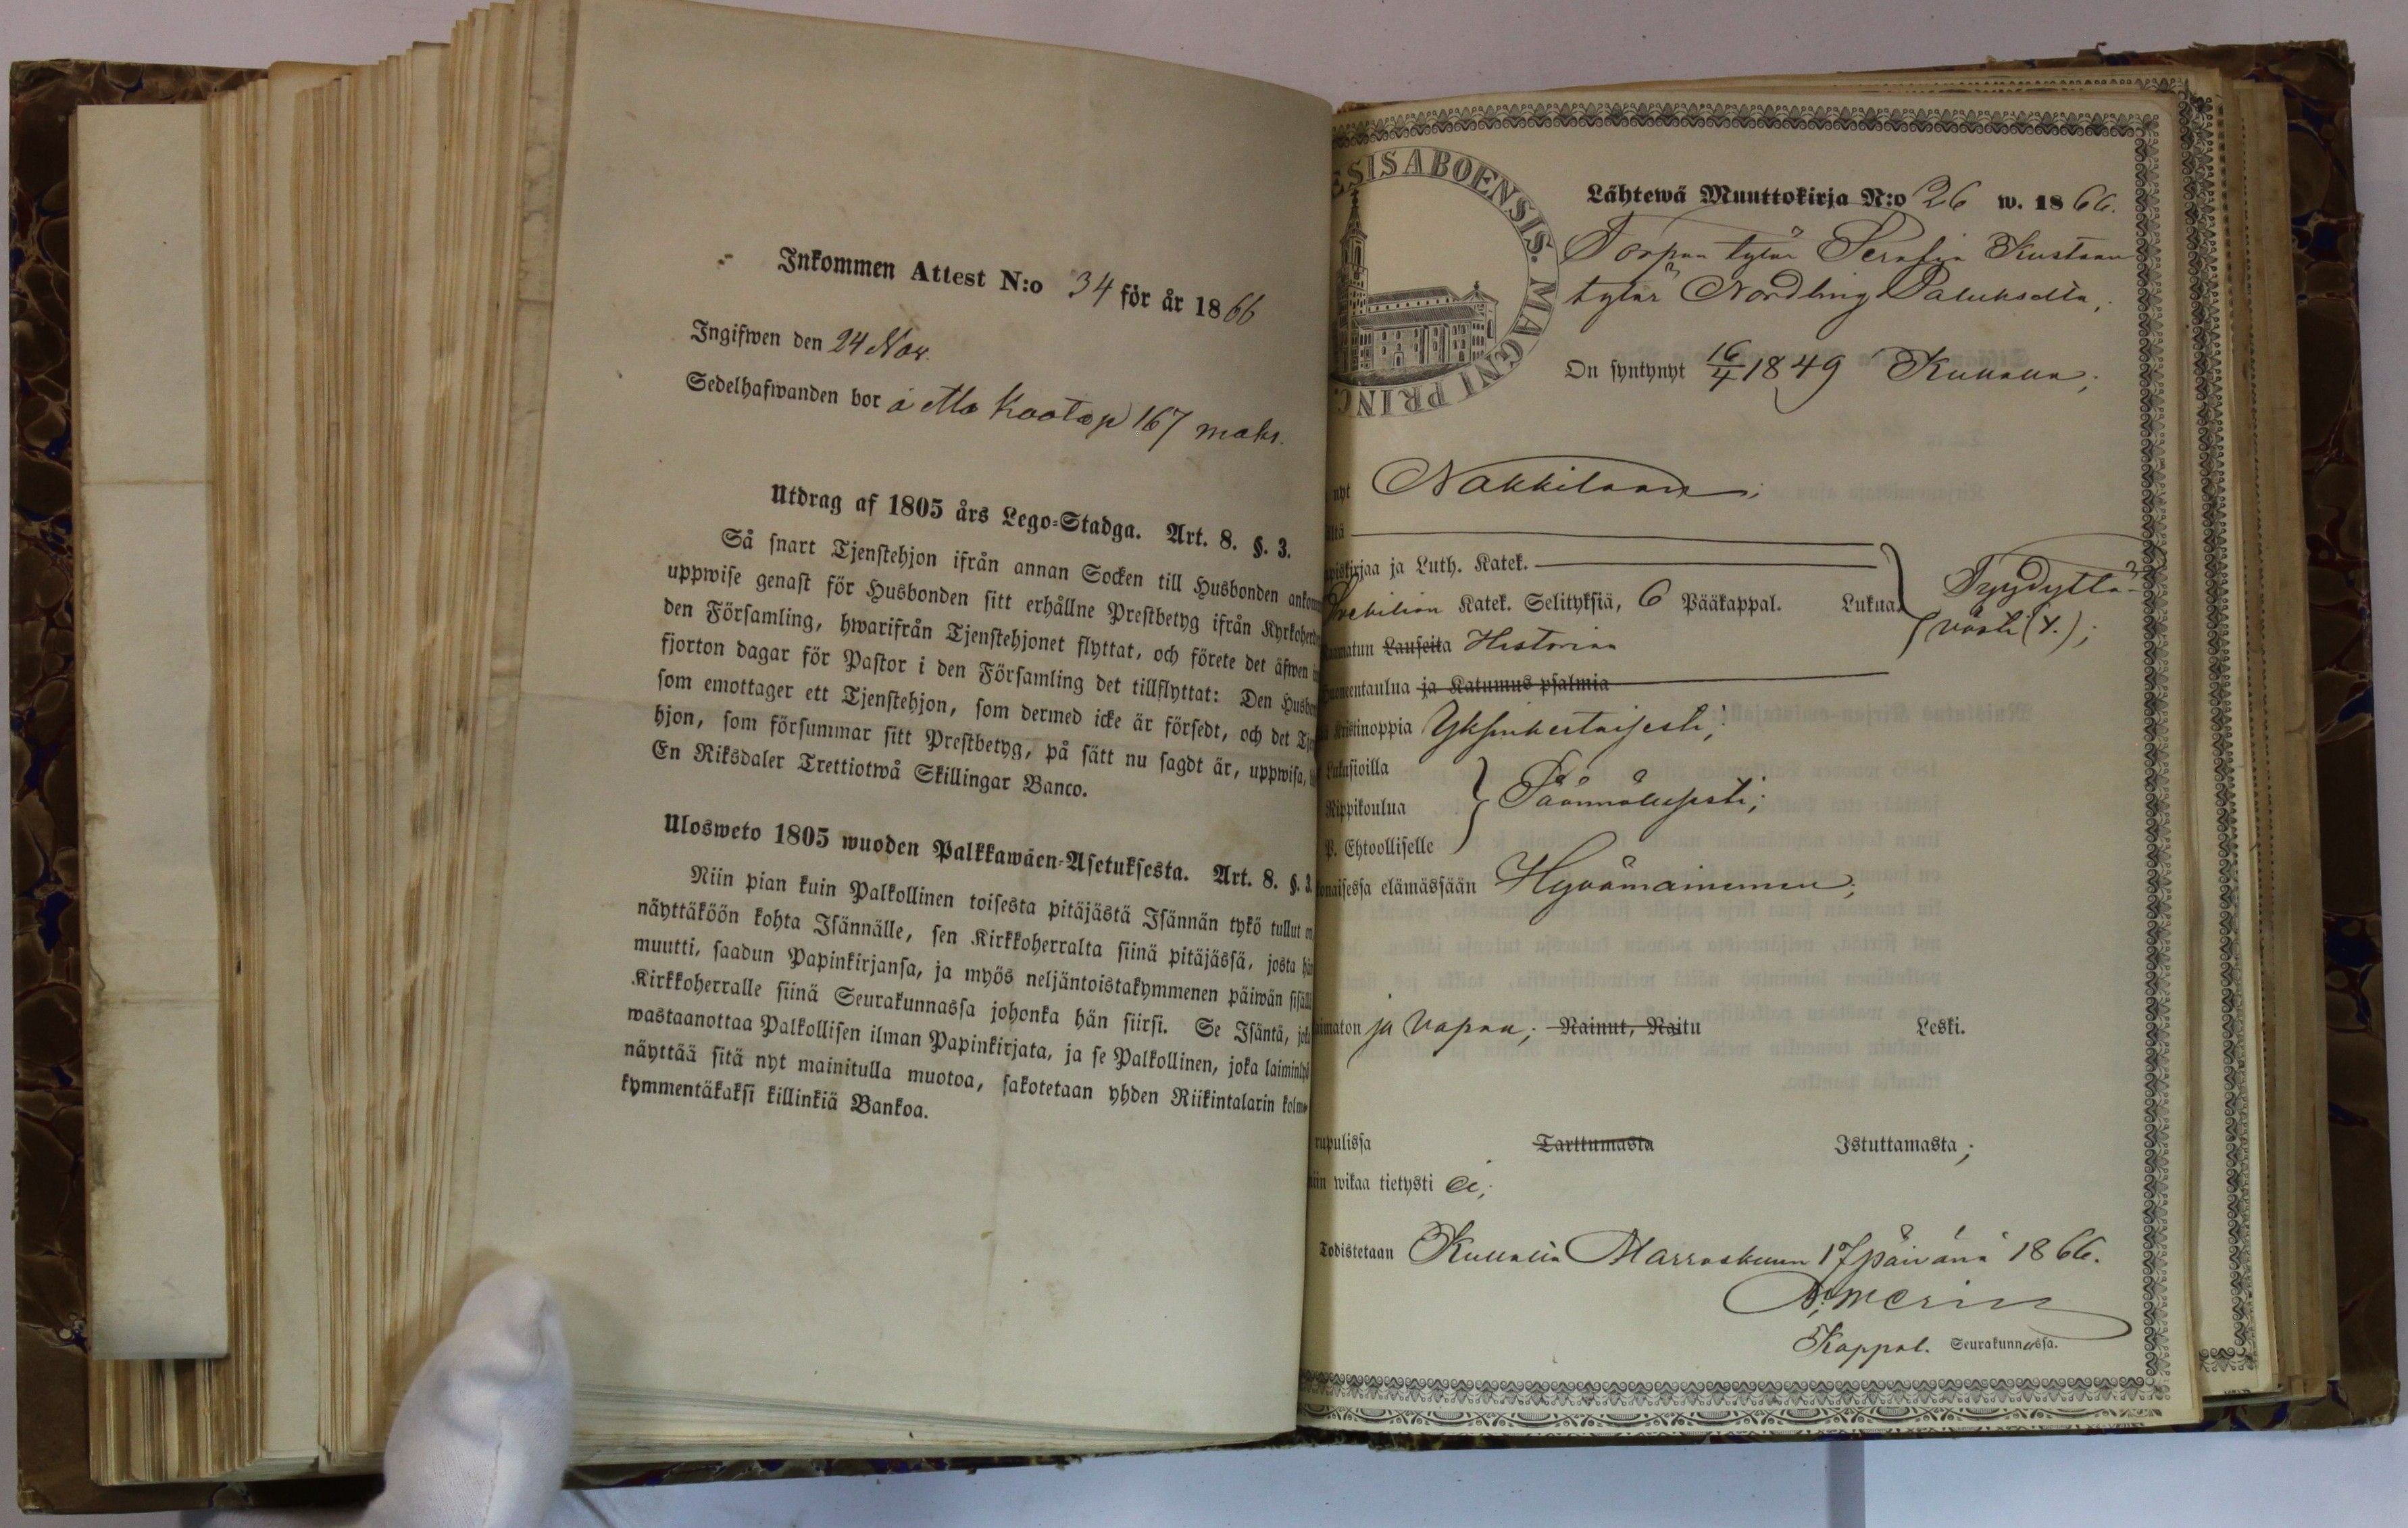 Inkommen Attest N:o 34 för år 1866
Ingifwen den 24 Nov.
Sedelhafwanden bor å 167
Utdrag af 1805 års Lego-Stadga. Art. 8. §. 3.
Så snart Tjenstehjon ifrån annan Socken till Husbonden
uppwise genast för Husbonden sitt erhållne Prestbetyg ifrån
den Församling, hwarifrån Tjenstehjonet flyttat, och förete det äfwen
fjorton dagar för Pastor i den Församling det tillflyttat: Den
som emottager ett Tjenstehjon, som dermed icke är försedt, och det
hjon, som försummar sitt Prestbetyg, på sätt nu sagdt är, uppwisa,
En Riksdaler Trettiotwå Skillingar Banco.
Ulosweto 1805 wuoden Palkkawäen-Asetuksesta. Art. 8. §. 3.
Niin pian kuin Palkollinen toisesta pitäjästä Isännän tykö tullut on
näyttäköön kohta Isännälle, sen Kirkkoherralta siinä pitäjässä, josta
muutti, saadun Papinkirjansa, ja myös neljäntoistakymmenen päiwän
Kirkkoherralle siinä Seurakunnassa johonka hän siirsi. Se Isäntä,
wastaanottaa Palkollisen ilman Papinkirjata, ja se Palkollinen, joka
näyttää sitä nyt mainitulla muotoa, sakotetaan yhden Riikintalarin kolme-
kymmentäkaksi killinkiä Bankoa.
ESIS ABOENSIS. MAGNI PRINC
Lähtewä Muuttokirja N:o 26 w. 1866.
Torpan tytär Serafia Kustaan
tytär Nordling
On syntynyt 16/4 1849 Kullaalla;
nyt Nakkilaan;
ltä
piskirjaa ja Luth. Katek.
Katek. Selityksiä, 6 Pääkappal. Lukua. Tyydyttä-
västi (y.);
amatun Lauseita Historiaa
uoneentaulua ja Katumus psalmia
Kristinoppia Yksinkertaisesti;
Lukusioilla
Rippikoulua Säännöllisesti;
P. Ehtoolliselle
onaisessa elämässään Hyvämaineinen;
aimaton ja vapaa; Nainut, Naitu Leski.
rupulissa Tarttumasta Istuttamasta;
iin wikaa tietysti ei;
Todistetaan Kullalla Marraskuun 17 päivänä 1866.
Kappal. Seurakunnassa.